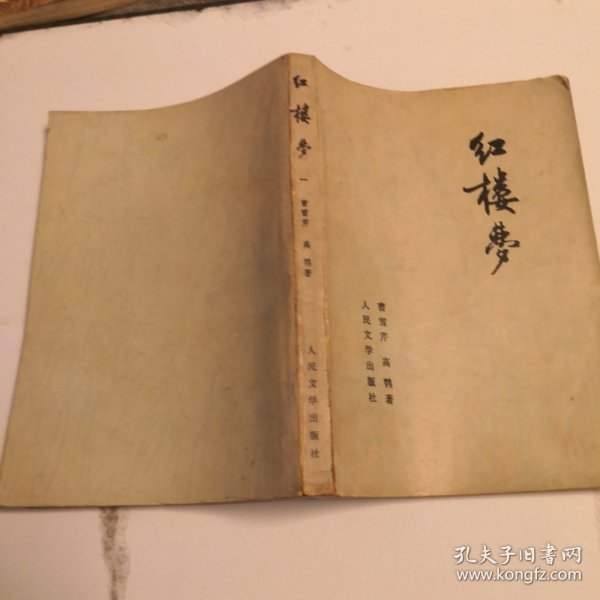 红楼梦
一
曹雪芹 高鹗著
人民文学出版社
红楼梦
曹雪芹 高鹗著
人民文学出版社
孔夫子旧书网
www.kongfz.com